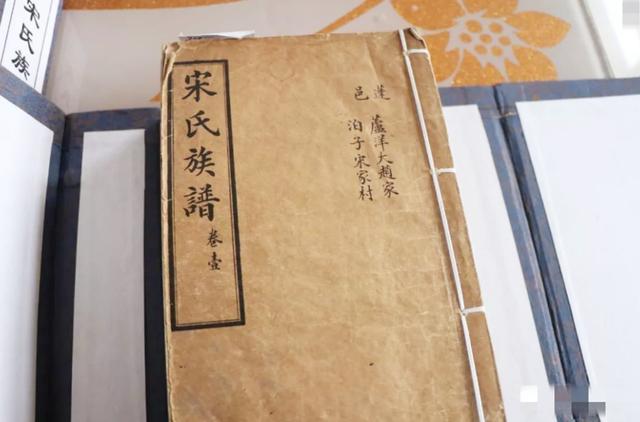 宋氏族
蓬邑
蘆洋大趙家
泊子宋家村
宋氏族譜
卷壹